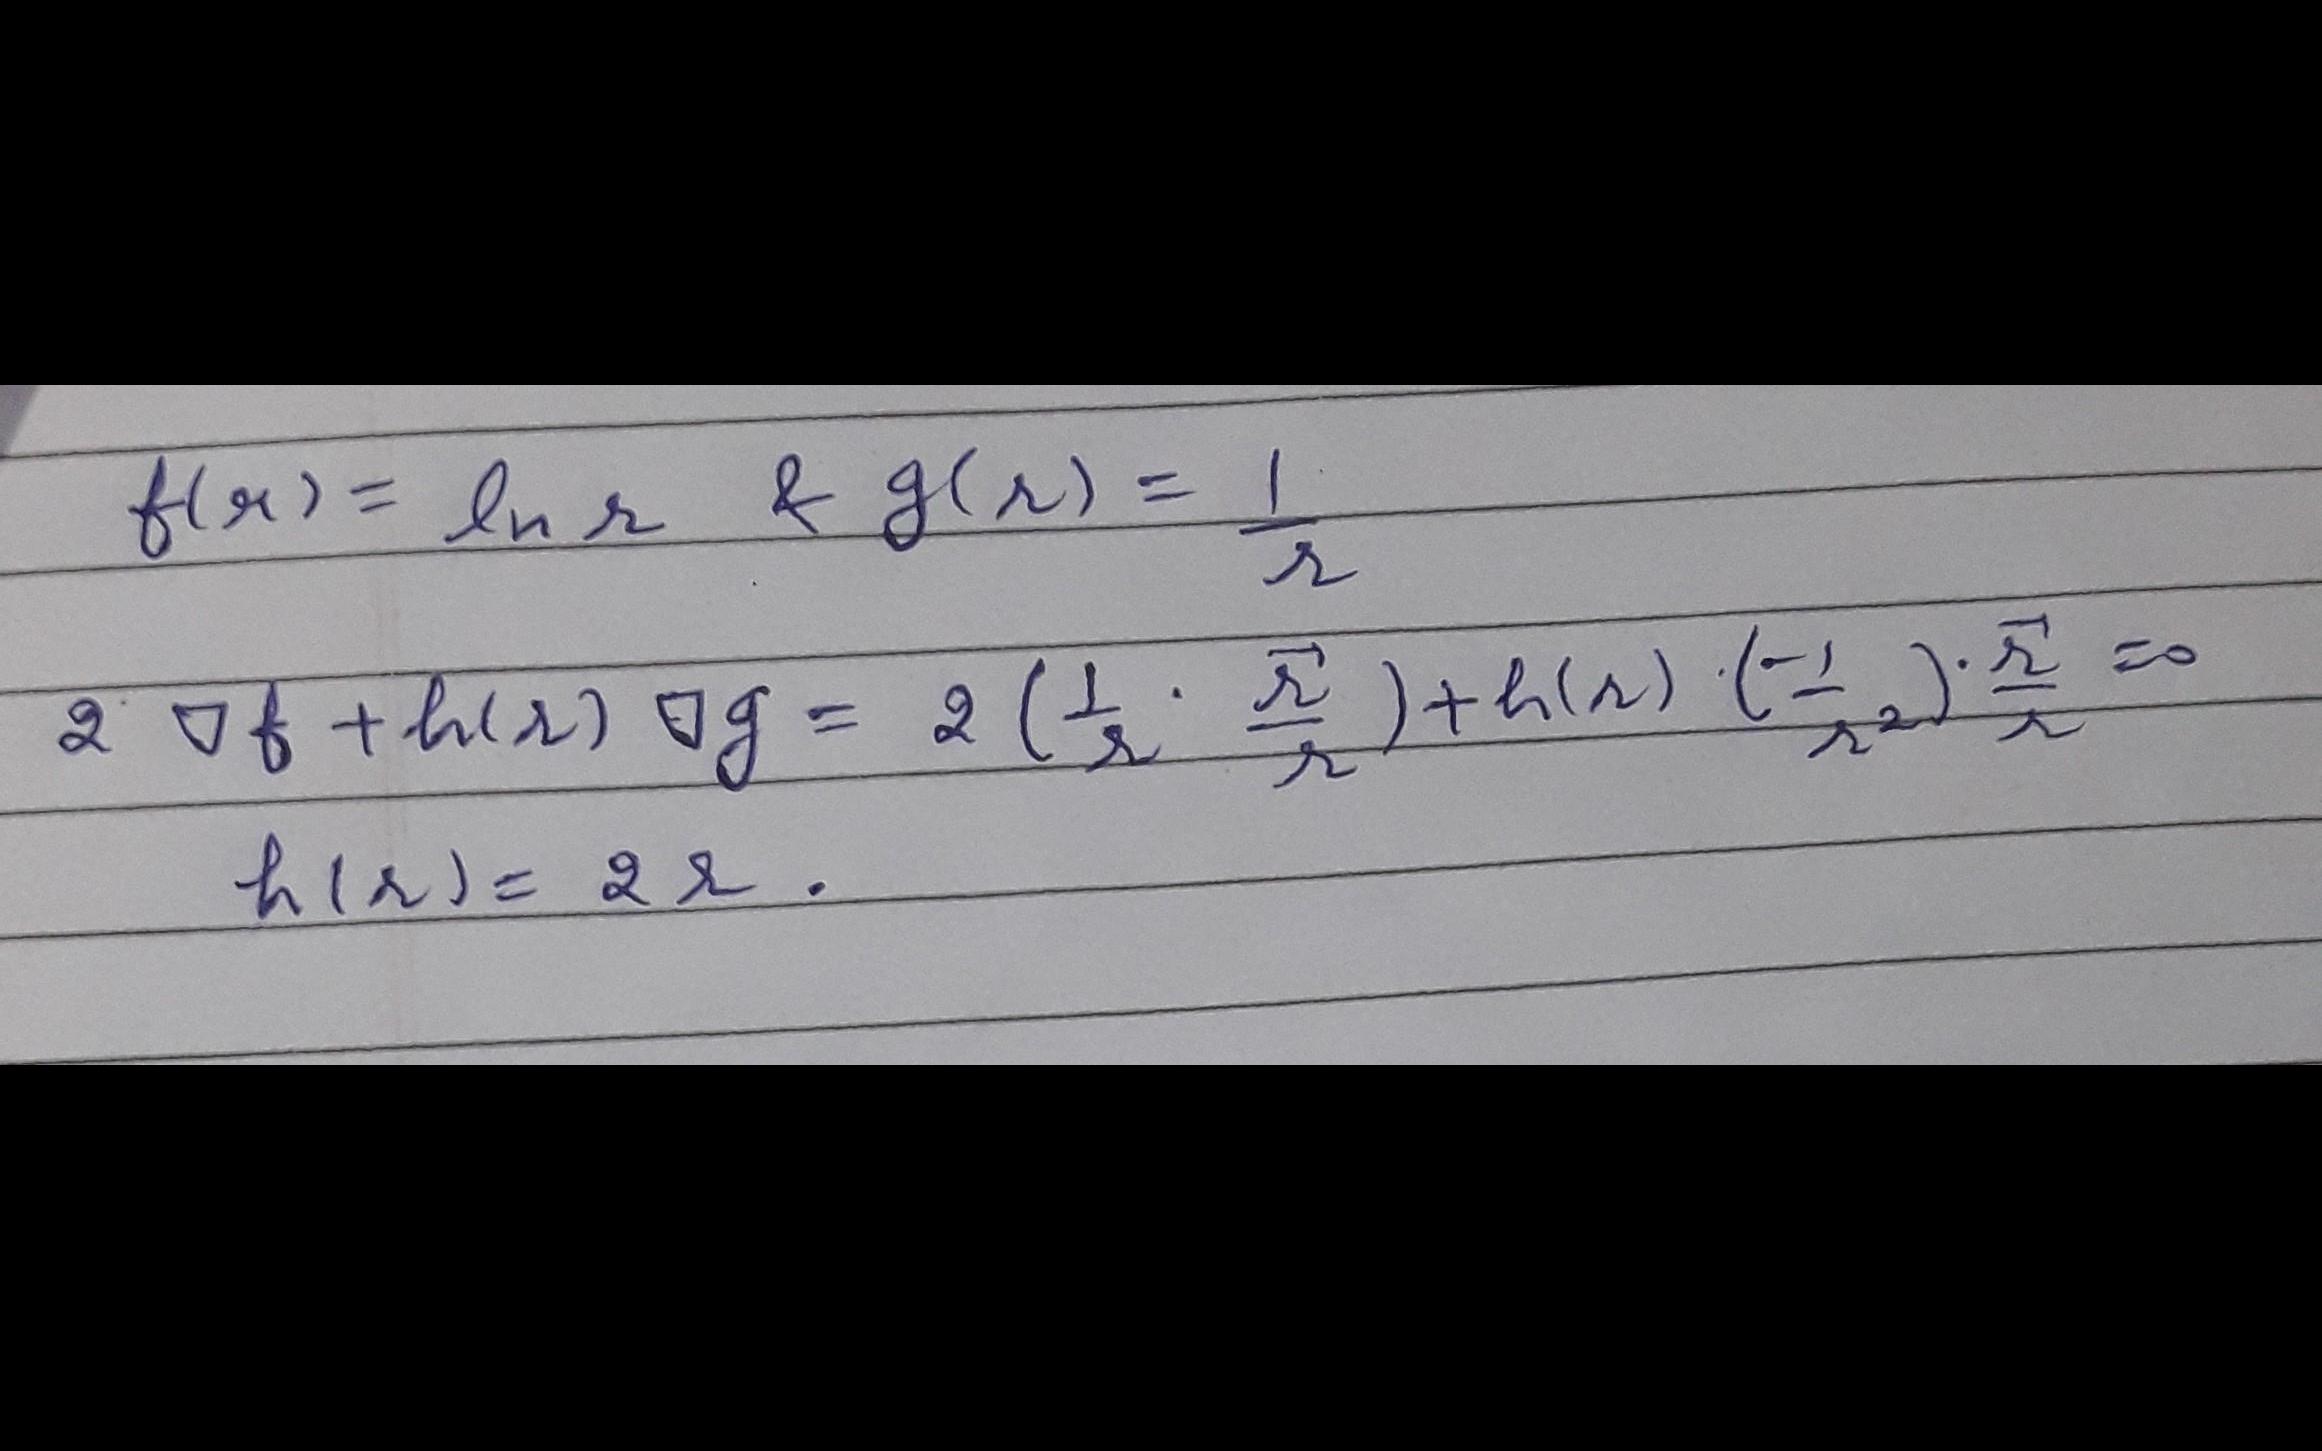 f(r) = ln r & g(r) = 1/r
2 ∇f + h(r) ∇g = 2 (1/r · r⃗/r) + h(r) · (-1/r²) · r⃗/r = 0
h(r) = 2r.